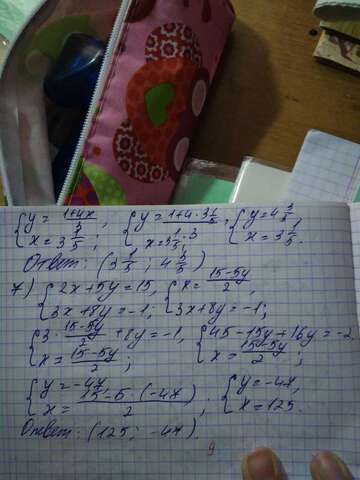 {y = (1+4x)/3, x = 3 1/5; {y = (1+4·3 1/5)/3, x = 3 1/5; {y = 4 3/5, x = 3 1/5.
Ответ: (3 1/5; 4 3/5)
7) {2x+5y=15, 3x+8y=-1; {x = (15-5y)/2, 3x+8y=-1;
{3·(15-5y)/2+8y=-1, x = (15-5y)/2; {45-15y+16y=-2, x = (15-5y)/2;
{y=-47, x = (15-5·(-47))/2; {y=-47, x=125.
Ответ: (125; -47).